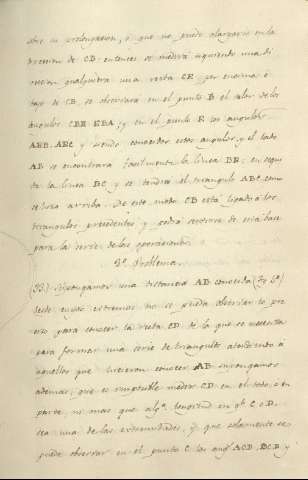 sobre su prolongacion, ó que no puede alargarse en la
direccion de CB: entonces se medirá siguiendo una di-
reccion qualquiera una recta CE por encima ó
bajo de CB, se observará en el punto B el valor de los
angulos CBE EBA; y en el punto E los angulos
AEB. ABE y siendo conocidos estos angulos y el lado
AB se encontrará facilmente la linea BE: en segui-
da la linea BC y se tendrá el triangulo ABC como
se hizo arriba. De este modo CB está ligado á los
triangulos precedentes y podrá servirse de esta base
para la serie de las operaciones.
3º Problema.
(33.) Supongamos una distancia AB conocida (Fig 6ª)
desde cuyos extremos no se pueda observar lo pre-
ciso para conocer la recta CD de la que se necesita
para formar una serie de triangulos atendiendo á
aquellos que hicieron conocer AB supongamos
ademas, que es imposible medir CD en el todo, ó en
parte, ni mas que algª. longitud en qe. C ó D.
sea una de las extremidades, y que solamente se
puede observar en el punto C los angs ACD, BCD y